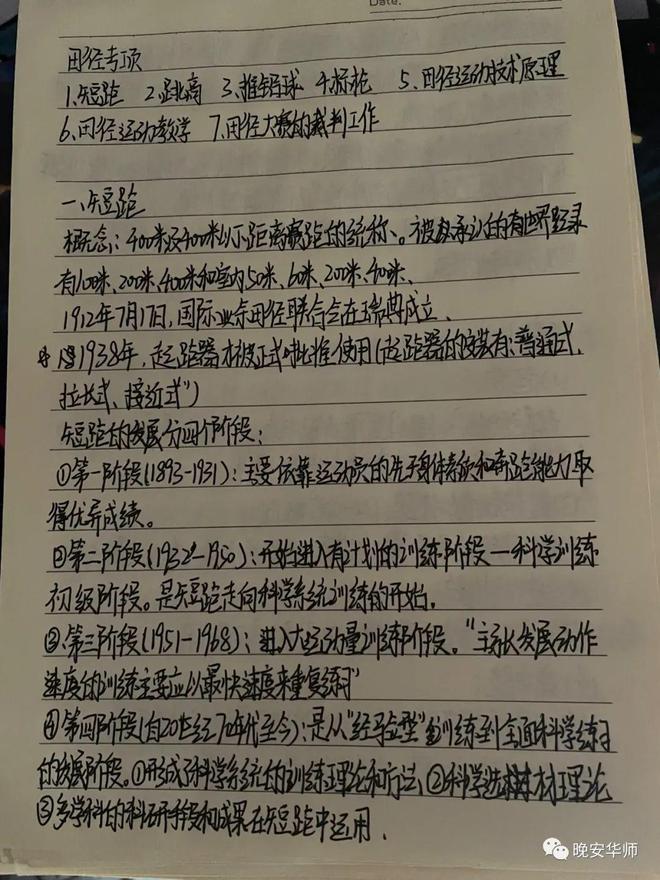 Date:
田径专项
1、短跑 2、跳高 3、推铅球 4、标枪 5、田径运动技术原理
6、田径运动教学 7、田径大赛的裁判工作
一、短跑
概念:400米及400米以下距离赛跑的统称。被承认的有世界纪录
有100米、200米、400米和室内50米、60米、200米、40米、
1912年7月17日,国际业余田径联合会在瑞典成立、
1938年,起跑器才被正式批准使用(起跑器的安装有:普通式、
拉长式、接近式")
短跑的发展分四个阶段:
①第一阶段(1893-1931):主要依靠运动员的先天身体素质和奔跑能力取
得优异成绩。
②第二阶段(1932-1950):开始进入有计划的训练阶段—科学训练
初级阶段。是短跑走向科学系统训练的开始.
③第三阶段(1951-1968):进入大运动量训练阶段。"主张发展动作
速度的训练主要应以最快速度来重复练习"
④第四阶段(自20世纪70年代至今):是从"经验型"训练到全面科学练习
的发展阶段。①形成了科学系统的训练理论和方法、②科学选材理论
③多学科的科研手段和成果在短跑中运用.
晚安华师